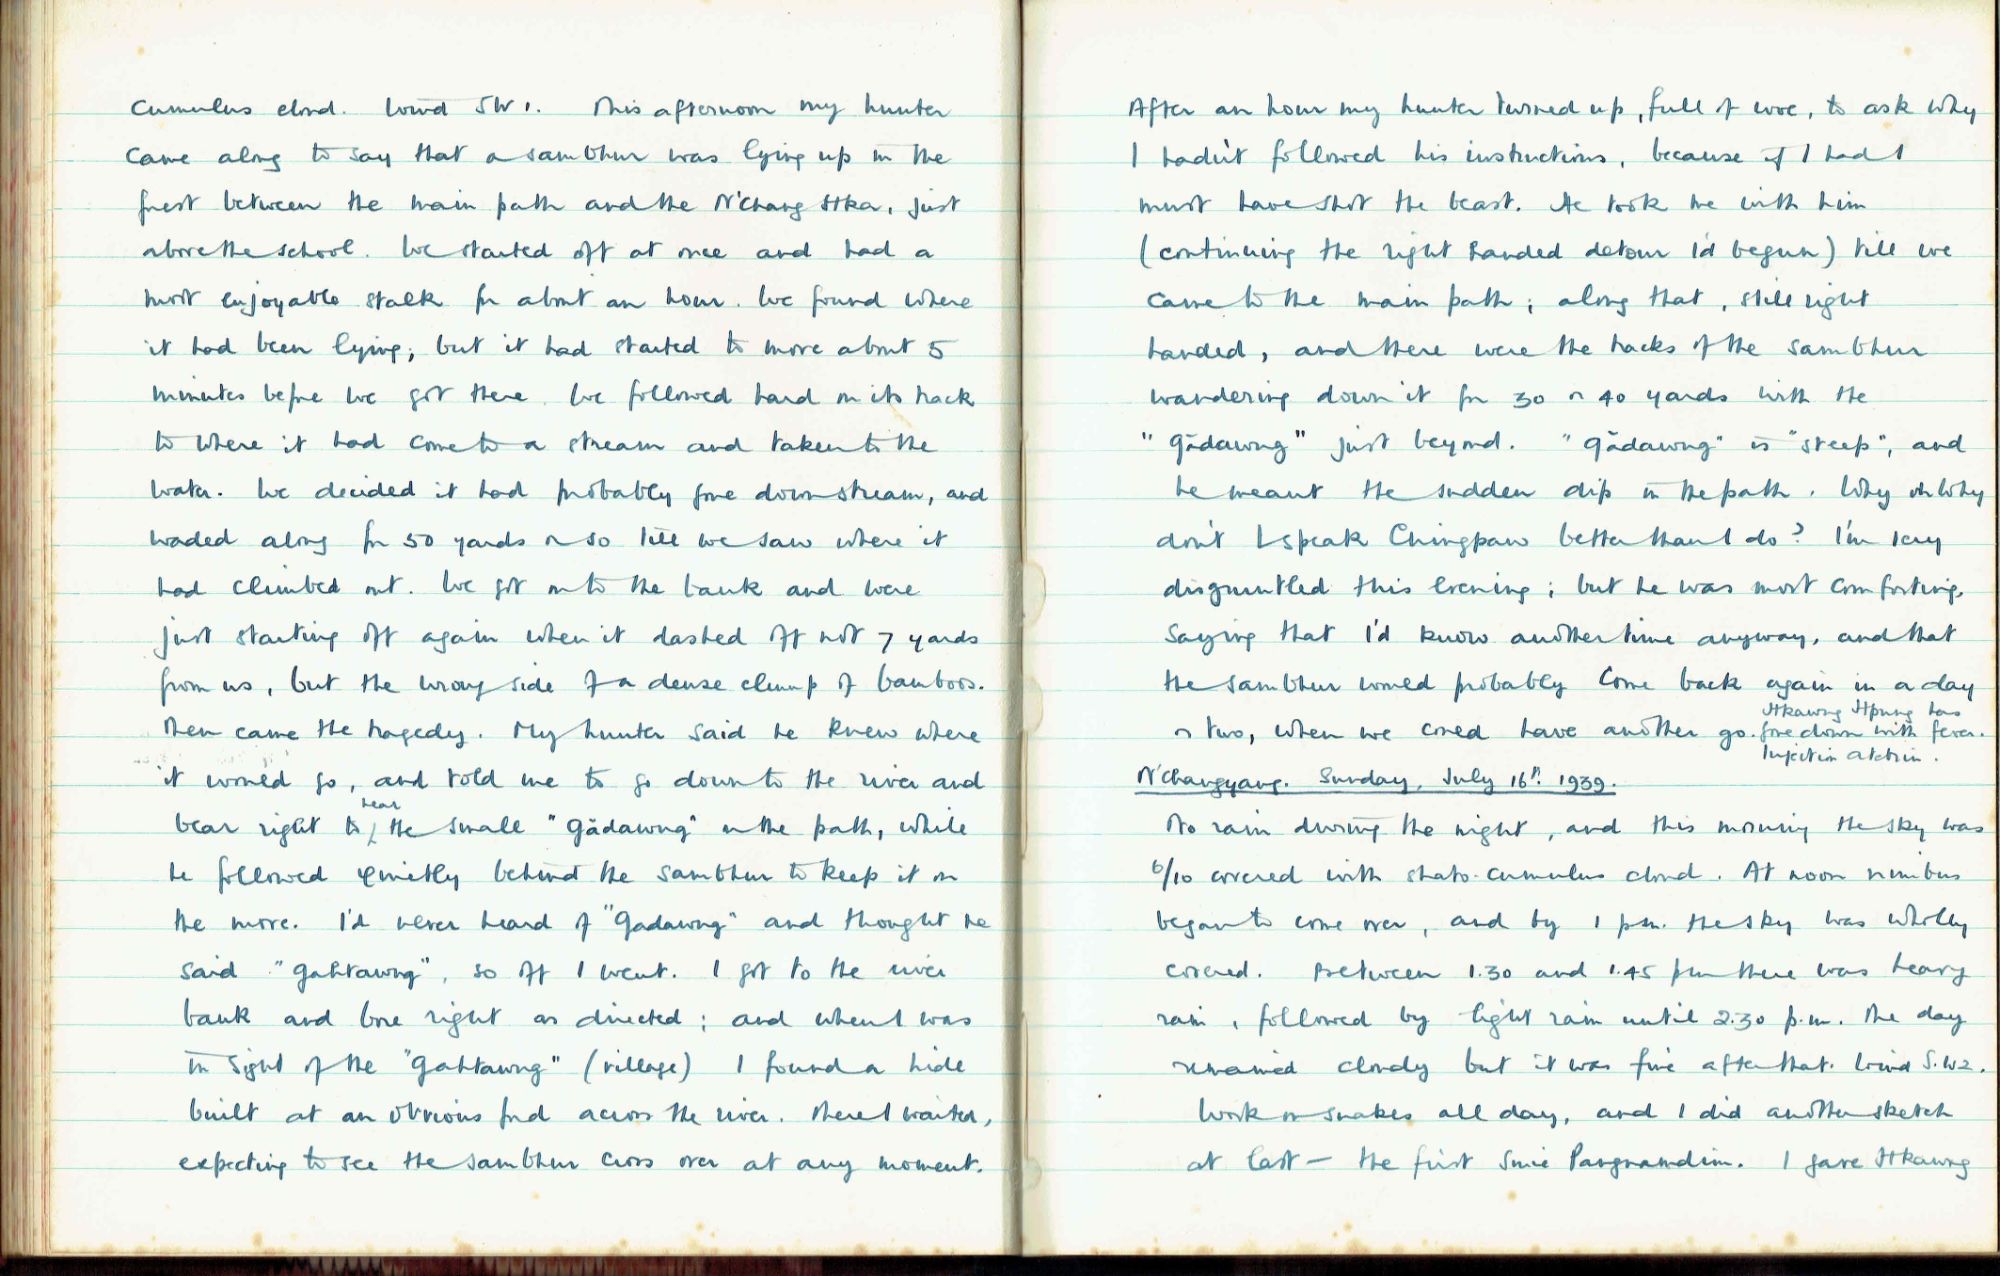 cumulus cloud. Wind SW 1. This afternoon my hunter
came along to say that a sambhur was lying up in the
forest between the main path and the N'Chang Hka, just
above the school. We started off at once and had a
most enjoyable stalk for about an hour. We found where
it had been lying; but it had started to move about 5
minutes before we got there. We followed hard on its track
to where it had come to a stream and taken to the
water. We decided it had probably gone downstream, and
waded along for 50 yards or so till we saw where it
had climbed out. We got on to the bank and were
just starting off again when it dashed off not 7 yards
from us, but the wrong side of a dense clump of bamboos.
Then came the tragedy. My hunter said he knew where
it would go, and told me to go down to the river and
bear right to near the small "gădawng" in the path, while
he followed quietly behind the sambhur to keep it on
the move. I'd never heard of "gădawng" and thought he
said "gahtawng", so off I went. I got to the river
bank and bore right as directed; and when I was
in sight of the "gahtawng" (village) I found a hide
built at an obvious ford across the river. There I waited,
expecting to see the sambhur cross over at any moment.
After an hour my hunter turned up, full of woe, to ask why
I hadn't followed his instructions, because if I had I
must have shot the beast. He took me with him
(continuing the right handed detour I'd begun) till we
came to the main path; along that, still right
handed, and there were the tracks of the sambhur
wandering down it for 30 or 40 yards with the
"gădawng" just beyond. "Gădawng" is "steep", and
he meant the sudden dip in the path. Why oh why
don't I speak Chingpaw better than I do? I'm very
disgruntled this evening; but he was most comforting,
saying that I'd know another time anyway, and that
the sambhur would probably come back again in a day
or two, when we could have another go. Hkawng Hpung has
gone down with fever.
Injection atebrin.
N'Changyang. Sunday, July 16th. 1939.
No rain during the night, and this morning the sky was
6/10 covered with strato-cumulus cloud. At noon nimbus
began to come over, and by 1 p.m. the sky was wholly
covered. Between 1.30 and 1.45 pm there was heavy
rain, followed by light rain until 2.30 p.m. The day
remained cloudy but it was fine after that. Wind S.W 2.
Work on snakes all day, and I did another sketch
at last – the first since Pangnamdim. I gave Hkawng